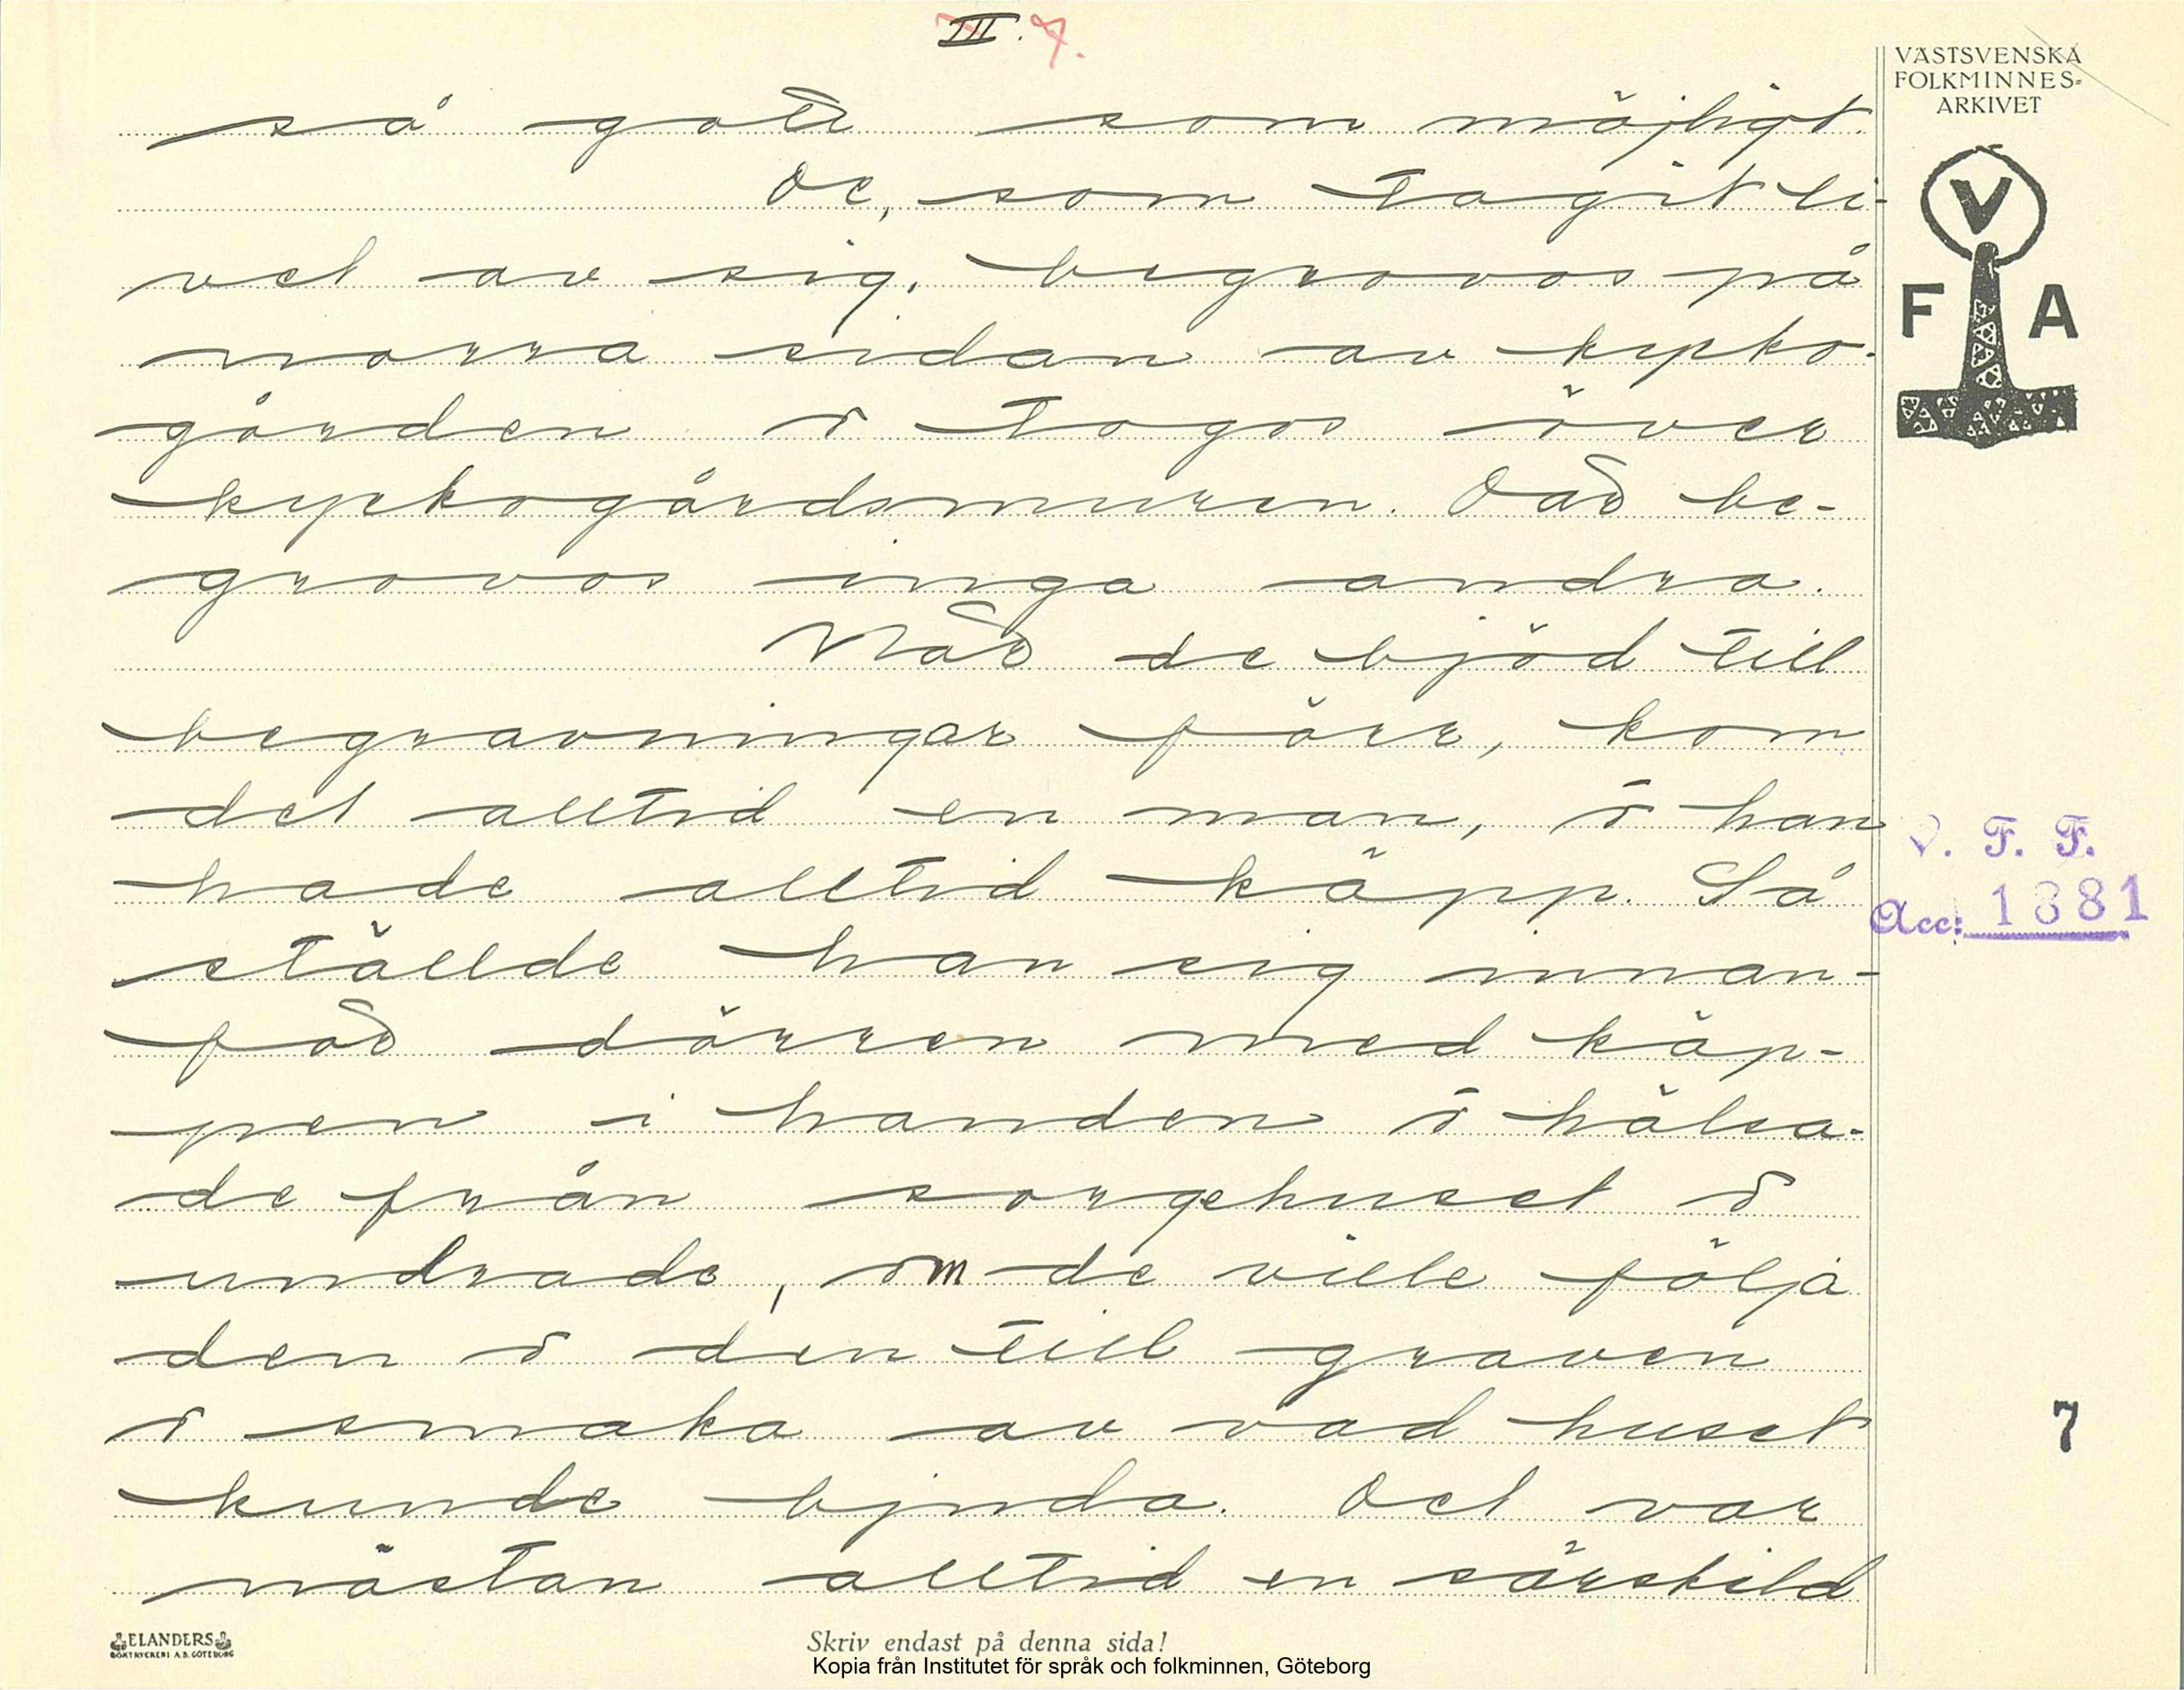 III. 7.
VÄSTSVENSKA
FOLKMINNES-
ARKIVET
V
F A
så gott som möjligt.
De, som tagit li-
vet av sig, begrovos på
norra sidan av kyrko-
gården o togos över
kyrkogårdsmuren. Där be-
grovos inga andra.
När de bjöd till
begravningar förr, kom
det alltid en man, o han
hade alltid käpp. Så
ställde han sig innan-
för dörren med käp-
pen i handen o hälsa-
de från sorgehuset o
undrade, om de ville följa
den o den till graven
o smaka av vad huset
kunde bjuda. Det var
nästan alltid en särskild
V. F. F.
Acc: 1881
7
ELANDERS
BOKTRYCKERI A.B. GÖTEBORG
Skriv endast på denna sida!
Kopia från Institutet för språk och folkminnen, Göteborg